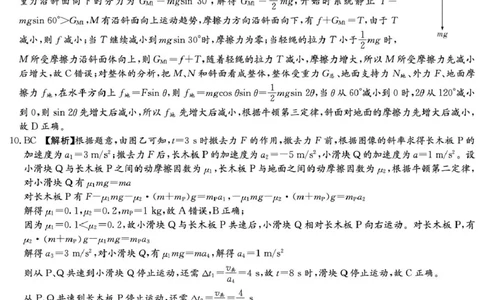 重力沿斜面向下的分力为 G_M1 = mgsin 30°,解得 G_M1 = 1/2 mg,开始时系统静止 T =
mgsin 60°>G_M1,M有沿斜面向上运动趋势,摩擦力方向沿斜面向下,有 f+G_M1=T,由于 T
减小,则 f 减小;当 T 继续减小到 mgsin 30°时,摩擦力为零;当轻绳的拉力 T 小于 1/2 mg 时,
mg
M所受摩擦力沿斜面体向上,则 G_M1=f+T,随着轻绳的拉力 T 减小,摩擦力增大,所以 M 所受摩擦力先减小
后增大,故 C 错误;对整体的分析,把 M、N 和斜面看成整体,整体受重力 G总、地面支持力 N地、外力 F、地面摩
擦力 f地,在水平方向上 f地=Fsin θ,则 f地=mgcos θsin θ=1/2 mgsin 2θ,当 θ 从 60°减小到 0 时,2θ 从 120°减小
到 0,则 sin 2θ 先增大后减小,所以 f地 先增大后减小,根据牛顿第三定律,斜面对地面的摩擦力先增大后减小,
故 D 正确。
10. BC 【解析】根据题意,由图乙可知,t=3 s 时撤去力 F 的作用,撤去力 F 前,根据图像的斜率求得长木板 P 的
加速度为 a₁=3 m/s²;撤去力 F 后,长木板 P 的加速度为 a₂=−5 m/s²,小滑块 Q 的加速度为 a=1 m/s²。设
小滑块 Q 与长木板 P 之间的动摩擦因数为 μ₁,长木板 P 与地面之间的动摩擦因数为 μ₂,根据牛顿第二定律,
对小滑块 Q 有 μ₁mg=ma
对长木板 P 有 F−μ₁mg−μ₂·(m+m_P)g=m_Pa₁,−μ₁mg−μ₂·(m+m_P)g=m_Pa₂
解得 μ₁=0.1,μ₂=0.2,m_P=1 kg,故 A 错误,B 正确;
因为 μ₁=0.1<μ₂=0.2,故小滑块 Q 与长木板 P 共速后,小滑块 Q 相对长木板 P 向右运动。对长木板 P,有
μ₂·(m+m_P)g−μ₁mg=m_Pa₃
解得 a₃=3 m/s²,对小滑块 Q,有 μ₁mg=ma₄,解得 a₄=1 m/s²
则从 P、Q 共速到小滑块 Q 停止运动,还需 Δt₁=v共/a₄=4 s,故 t=8 s 时,滑块 Q 停止运动,故 C 正确。
从 P、Q 共速到长木板 P 停止运动,还需 Δt₂=v共/a₃=4/3 s